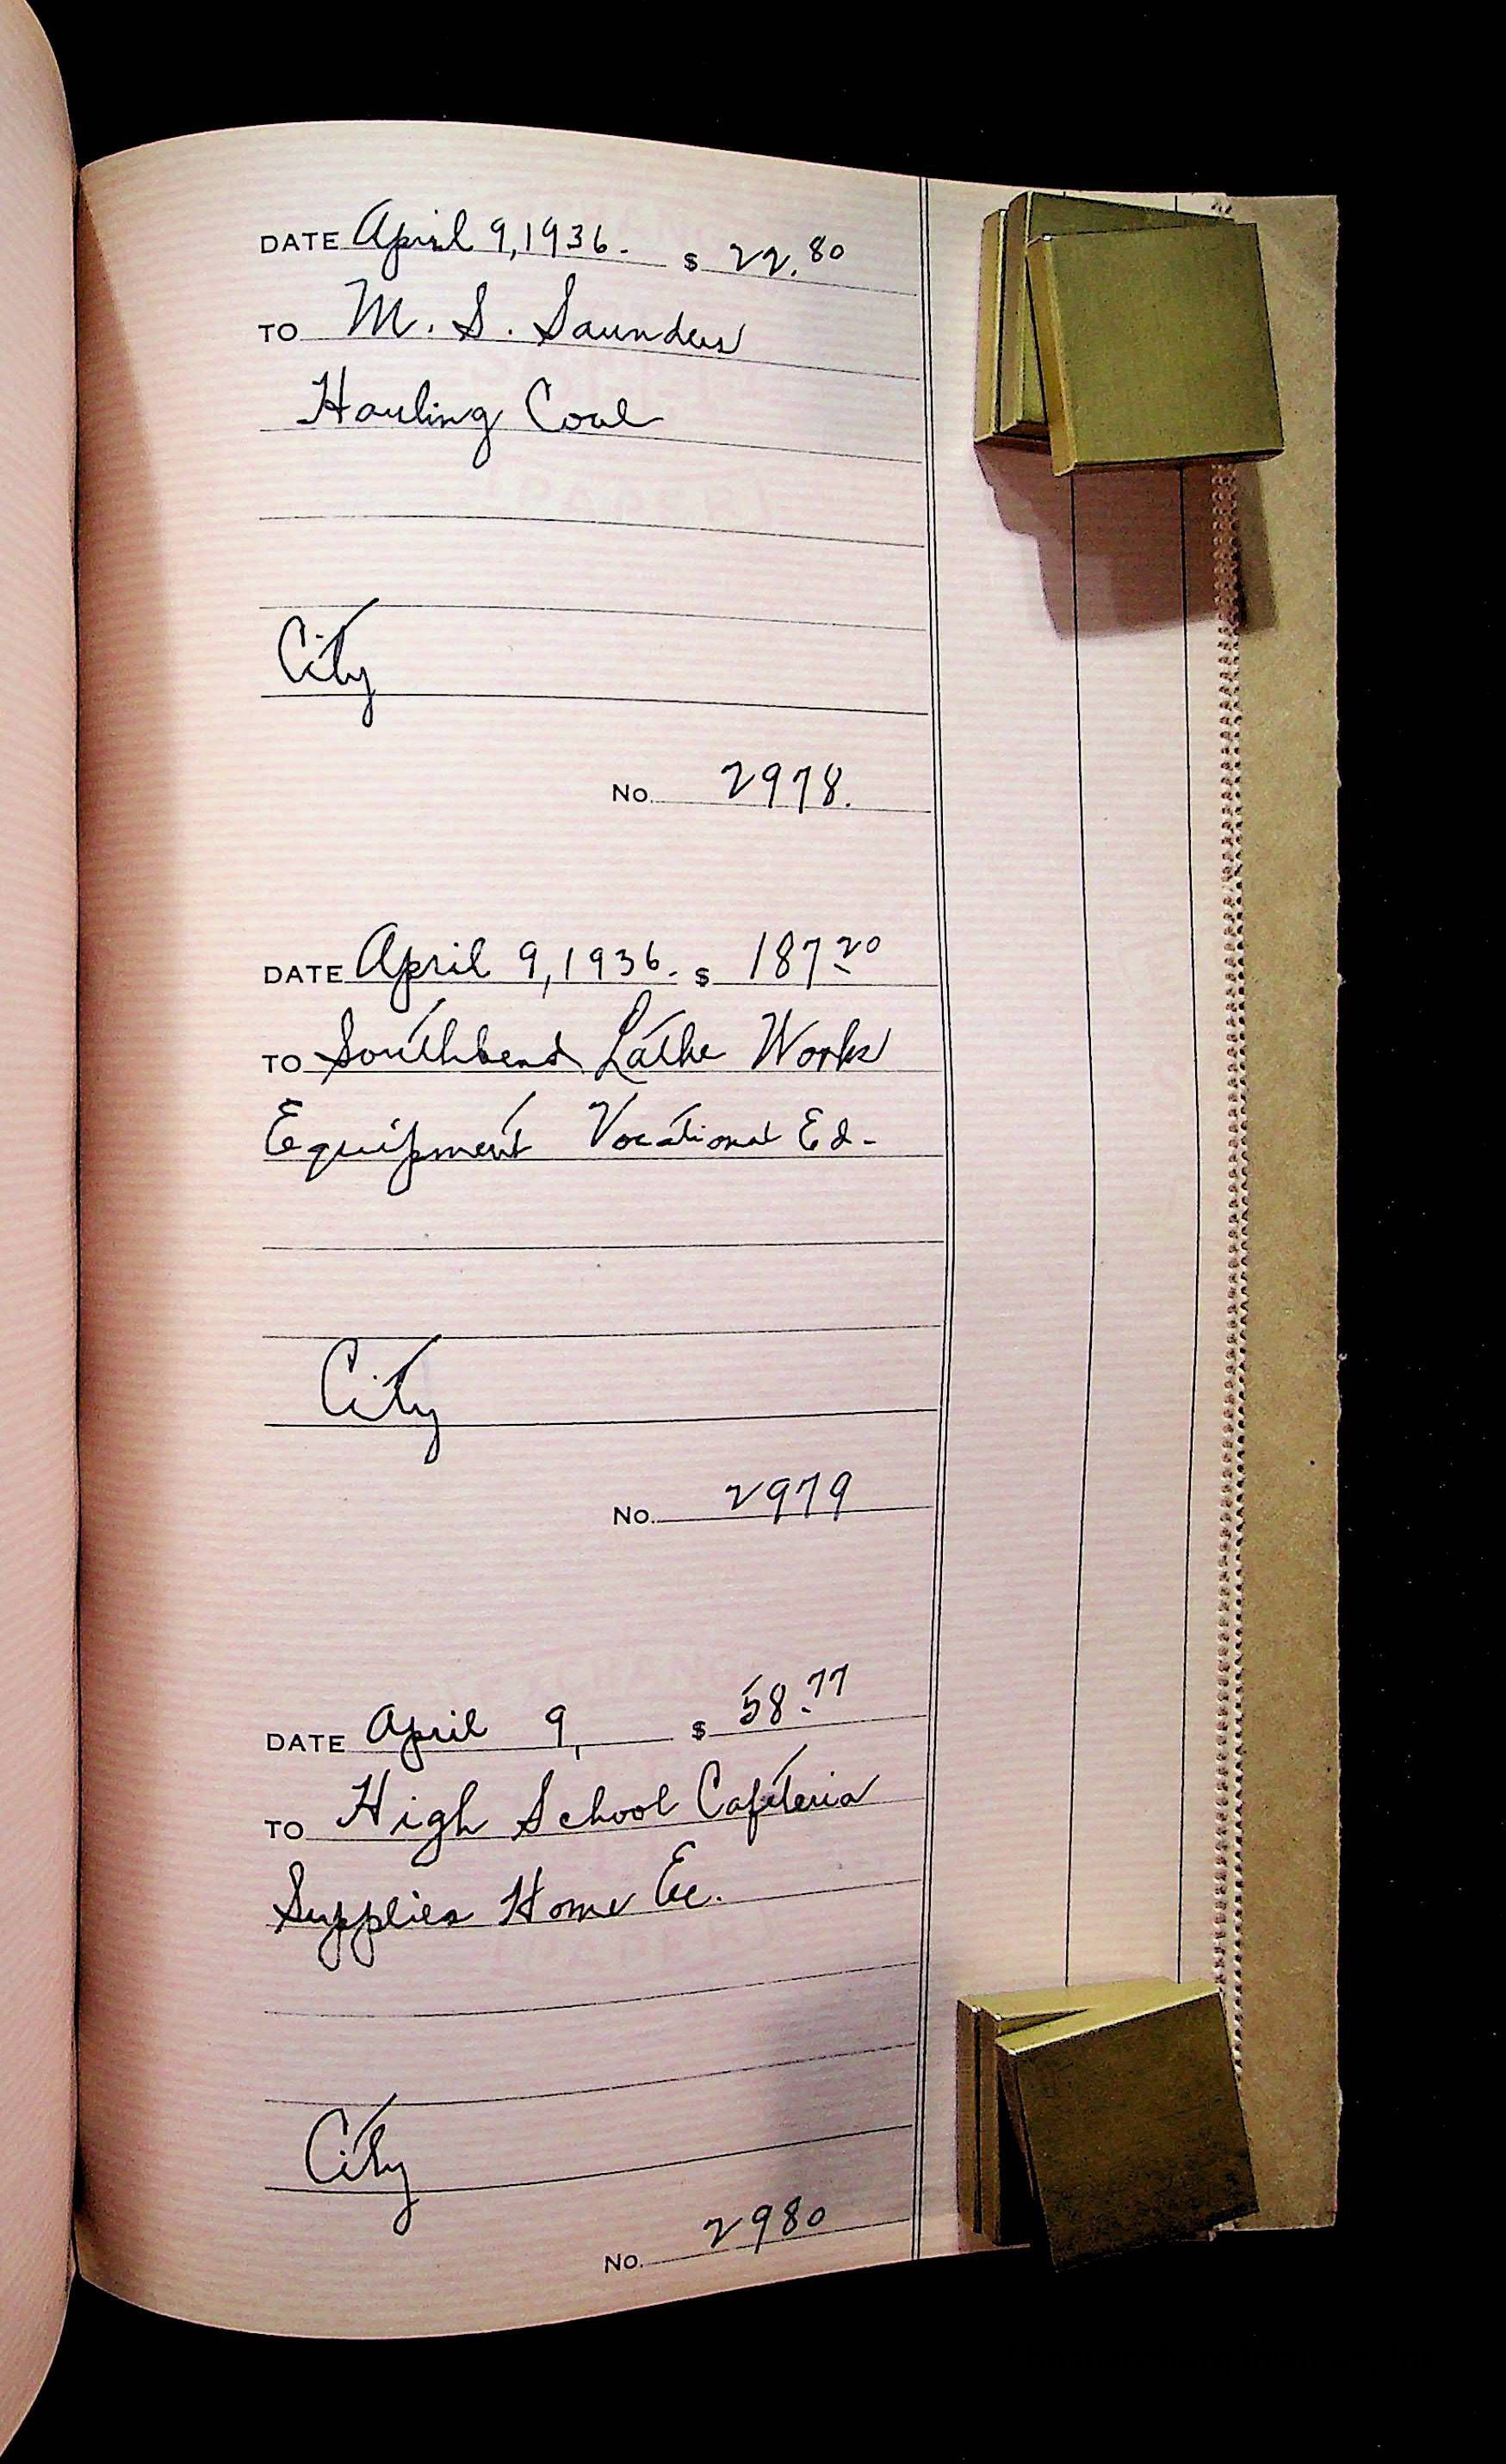 DATE April 9, 1936. $ 22.80
TO M. S. Saunders
Hauling Coal
City
No. 2978.
DATE April 9, 1936. $ 187 20
TO Southbend Lathe Works
Equipment Vocational Ed-
City
No. 2979
DATE April 9, $ 58.77
TO High School Cafeteria
Supplies Home Ec.
City
No. 2980